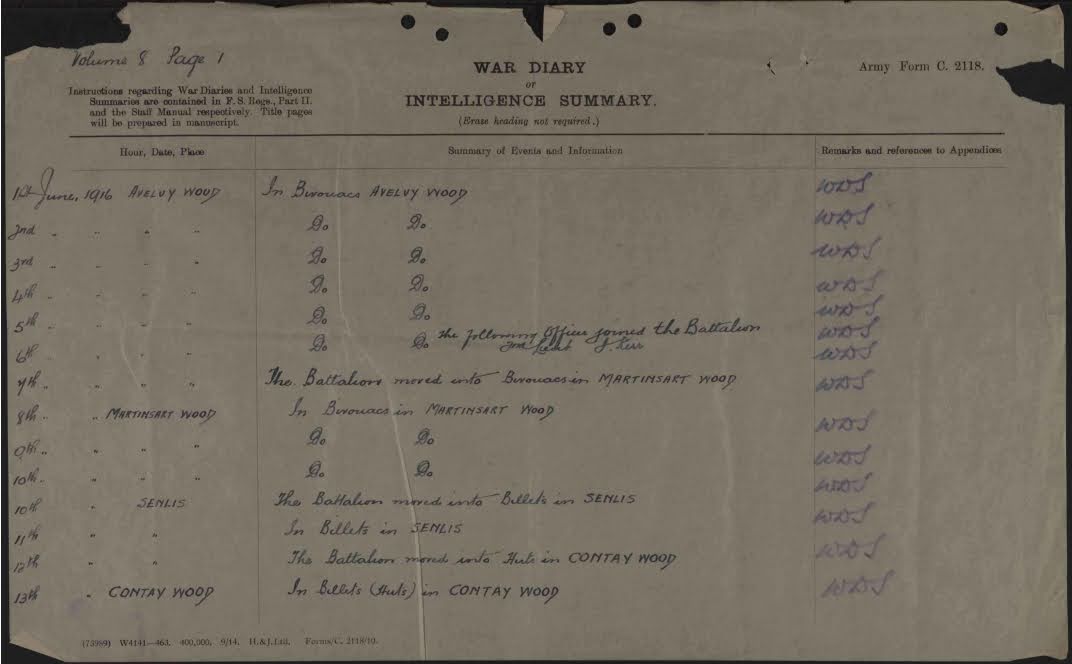 Volume 8 Page 1
WAR DIARY
or
INTELLIGENCE SUMMARY.
(Erase heading not required.)
Army Form C. 2118.
Instructions regarding War Diaries and Intelligence
Summaries are contained in F. S. Regs., Part II.
and the Staff Manual respectively. Title pages
will be prepared in manuscript.
Hour, Date, Place Summary of Events and Information Remarks and references to Appendices
1st June, 1916 AVELUY WOOD In Bivouacs AVELUY WOOD WDS
2nd " " " " Do Do WDS
3rd " " " " Do Do WDS
4th " " " " Do Do WDS
5th " " " " Do Do WDS
6th " " " " Do Do The following Officer joined the Battalion WDS
2nd Lieut J. Kerr WDS
7th " " " " The Battalion moved into Bivouacs in MARTINSART WOOD WDS
8th " " MARTINSART WOOD In Bivouacs in MARTINSART WOOD
9th " " " " Do Do WDS
10th " " " " Do Do WDS
10th " SENLIS The Battalion moved into Billets in SENLIS WDS
11th " " In Billets in SENLIS WDS
12th " " The Battalion moved into Huts in CONTAY WOOD WDS
13th " CONTAY WOOD In Billets (Huts) in CONTAY WOOD WDS
(73989) W4141—463. 400,000. 9/14. H.&J.Ltd. Forms/C. 2118/10.